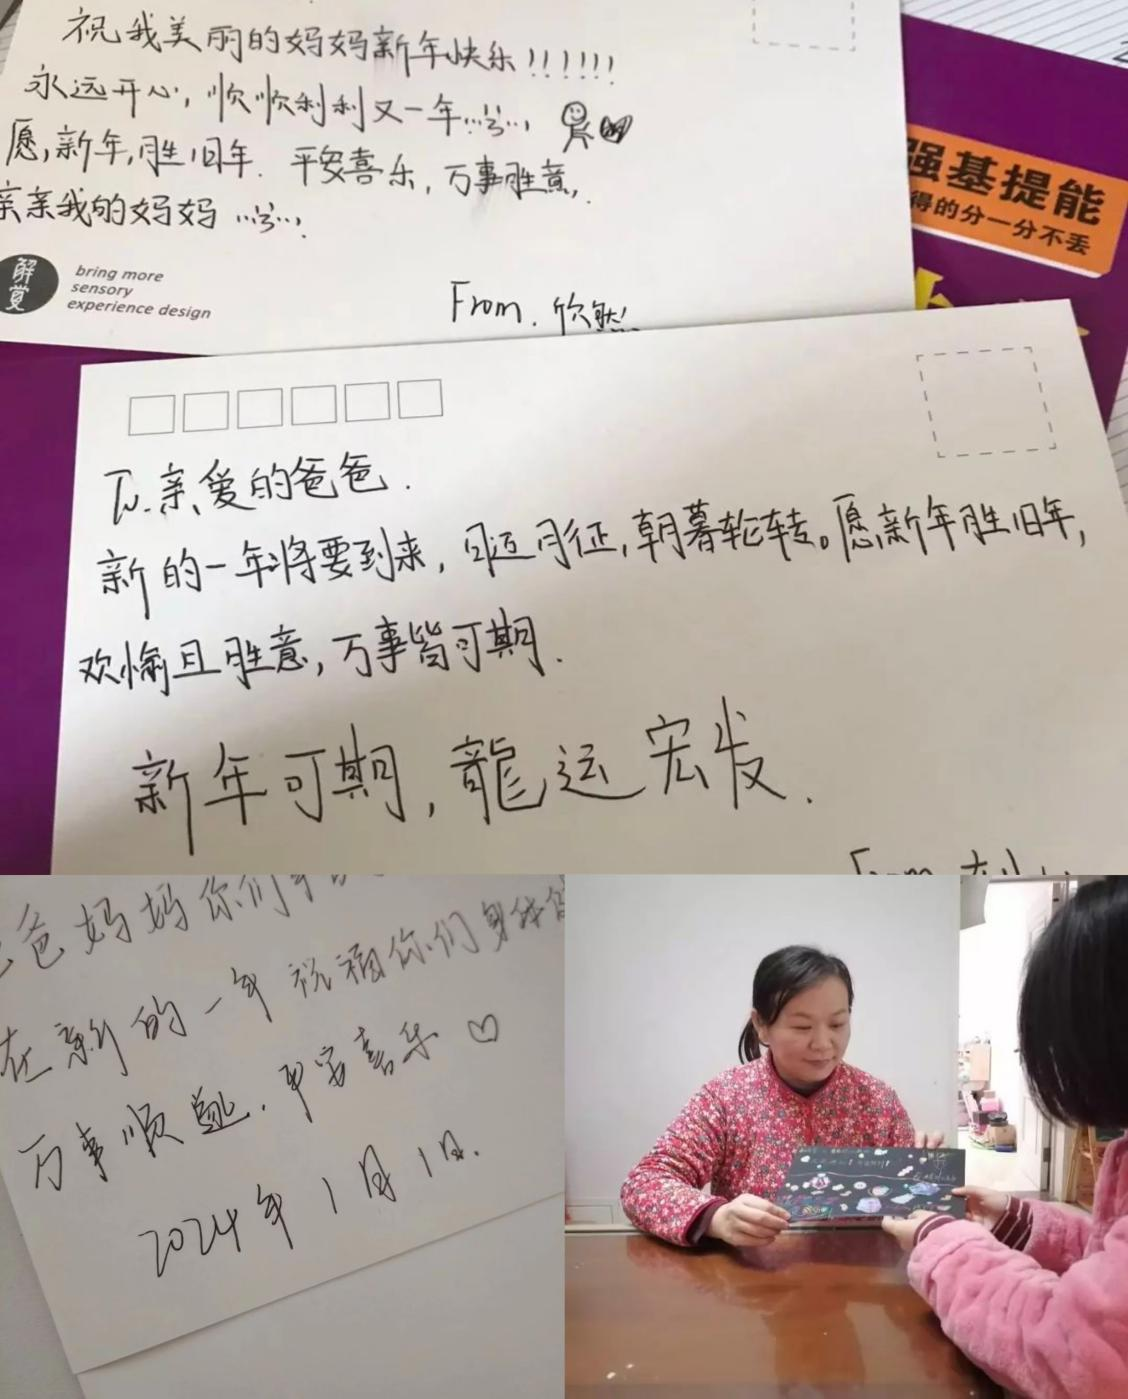 祝我美丽的妈妈新年快乐!!!!!!
永远开心,顺顺利利又一年
愿,新年,胜旧年.平安喜乐,万事胜意.
亲亲我的妈妈
解賞
bring more
sensory
experience design
From.欣然!
强基提能
得的分一分不丢
To.亲爱的爸爸.
新的一年将要到来,日迈月征,朝暮轮转。愿新年胜旧年,
欢愉且胜意,万事皆可期.
新年可期,龍运宏发.
From
爸妈妈你们
在新的一年祝福你们身体
万事顺 .平安喜乐♡
2024年1月1日.